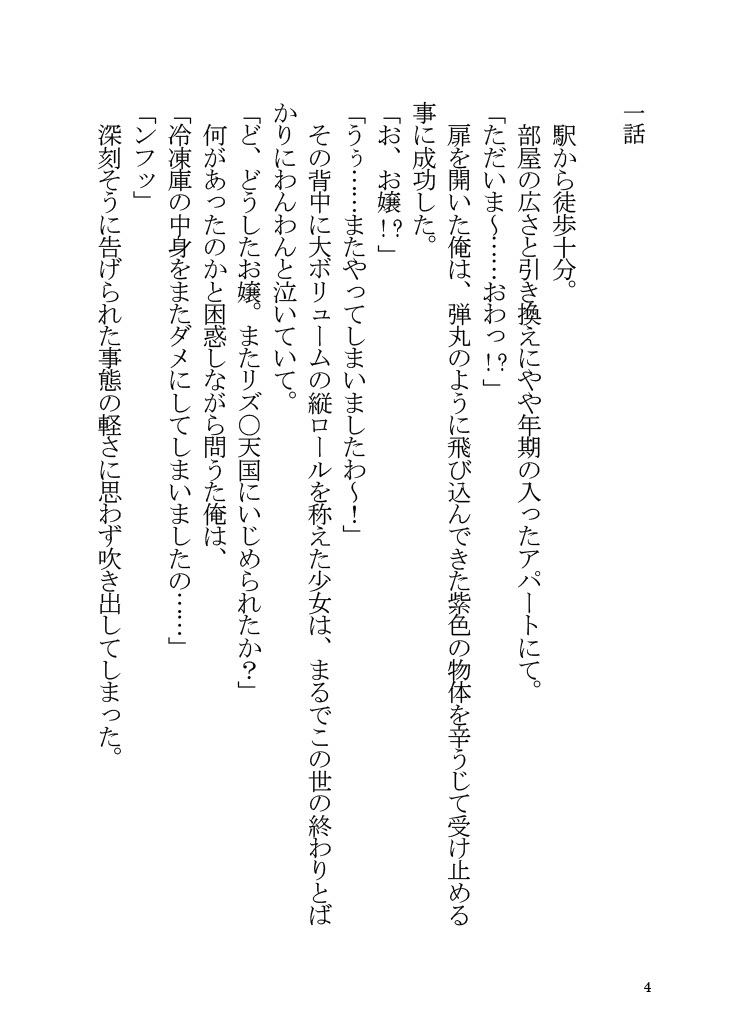 一話
駅から徒歩十分。
部屋の広さと引き換えにやや年期の入ったアパートにて。
「ただいま〜……おわっ!?」
扉を開いた俺は、弾丸のように飛び込んできた紫色の物体を辛うじて受け止める
事に成功した。
「お、お嬢!?」
「うぅ……またやってしまいましたわ〜！」
その背中に大ボリュームの縦ロールを称えた少女は、まるでこの世の終わりとば
かりにわんわんと泣いていて。
「ど、どうしたお嬢。またリズ〇天国にいじめられたか？」
何があったのかと困惑しながら問うた俺は、
「冷凍庫の中身をまたダメにしてしまいましたの……」
「ンフッ」
深刻そうに告げられた事態の軽さに思わず吹き出してしまった。
4